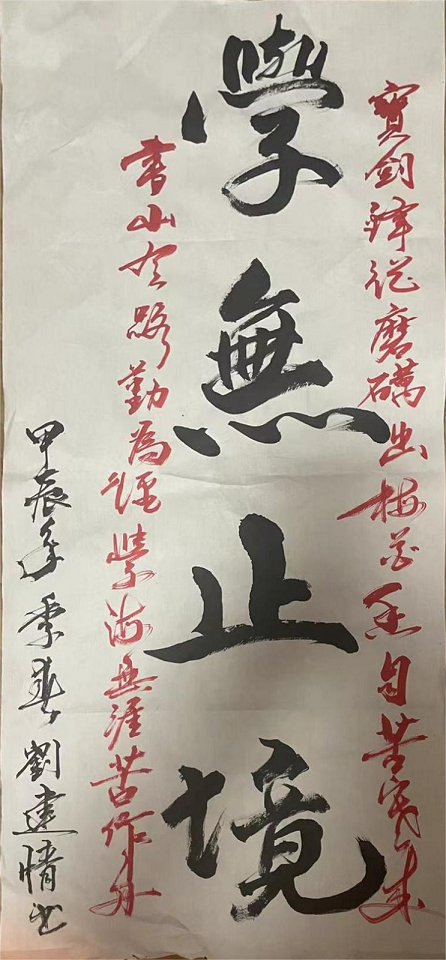 寶劍鋒從磨礪出梅花香自苦寒來
學無止境
書山有路勤為徑學海無涯苦作舟
甲辰年季春劉建情書